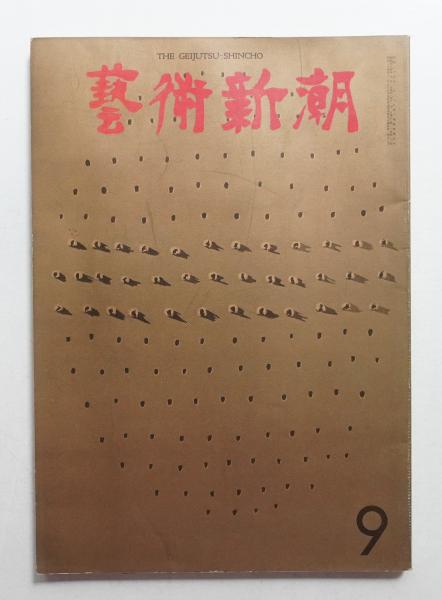 THE GEIJUTSU-SHINCHO
藝術新潮
9